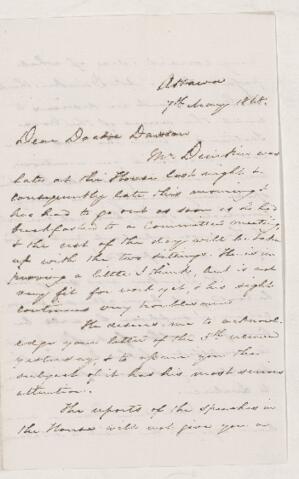 Ottawa
7th May 1868.
Dear Doctor Dawson
Mr. Dunkin was
late at the House last night &
consequently late this morning &
has had to go out as soon as he had
breakfasted to a Committee meeting
& the rest of the day will be taken
up with the two sittings. He is im
proving a little I think, but is not
very fit for work yet, & his sight
continues very troublesome.
He desires me to acknow
ledge your letter of the 5th received
yesterday, & to assure you the
subject of it has his most serious
attention.
The reports of the speeches in
the House will not give you a